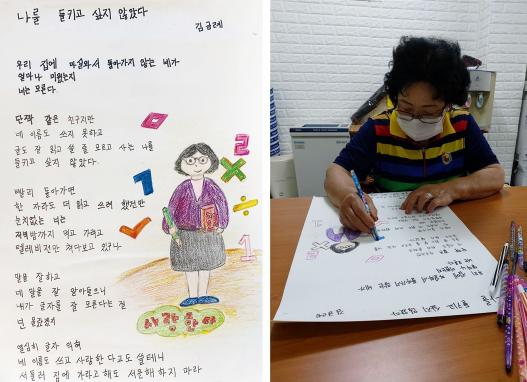 나를 들키고 싶지 않았다
김금례
우리 집에 마실와서 돌아가지 않는 네가
얼마나 미웠는지
너는 모른다
단짝 같은 친구지만
네 이름도 쓰지 못하고
글도 잘 읽고 쓸 줄 모르고 사는 나를
들키고 싶지 않았다.
빨리 돌아가면
한 자라도 더 읽고 쓰려 했건만
눈치없는 너는
저녁밥까지 먹고 가려고
텔레비전만 쳐다보고 있구나
말을 잘하고
네 말을 잘 알아들으니
내가 글자를 잘 모른다는 걸
넌 몰랐겠지
열심히 글자 익혀
네 이름도 쓰고 사랑한다고도 할테니
서둘러 집에 가라고 해도 서운해하지 마라
2
1